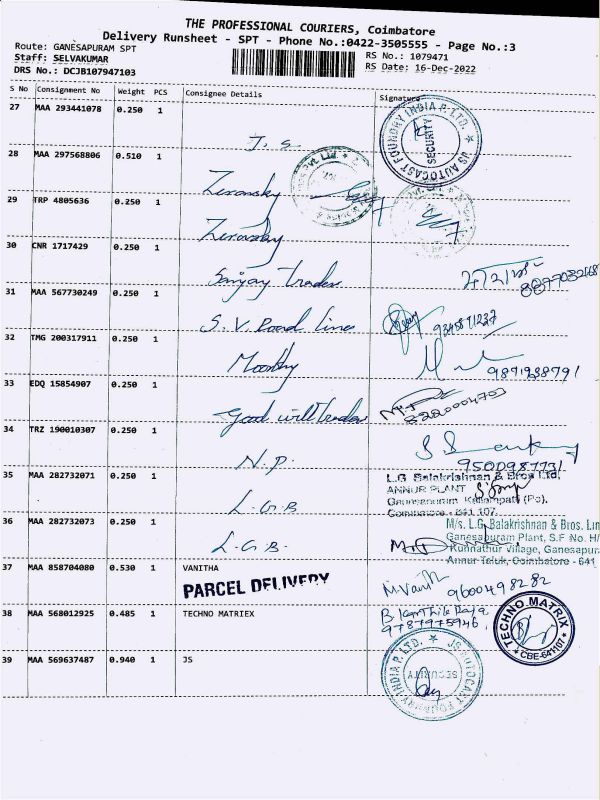 THE PROFESSIONAL COURIERS, Coimbatore
Delivery Runsheet - SPT - Phone No.:0422-3505555 - Page No.:3
Route: GANESAPURAM SPT
Staff: SELVAKUMAR
DRS No.: DCJB107947103
RS No.: 1079471
RS Date: 16-Dec-2022
S No Consignment No Weight PCS Consignee Details Signature
27 MAA 293441078 0.250 1 J. S
JS AUTOCAST FOUNDRY INDIA P. LTD.
SECURITY
28 MAA 297568806 0.510 1
29 TRP 4805636 0.250 1
30 CNR 1717429 0.250 1 Sanjay Trades
31 MAA 567730249 0.250 1 S. V. Road lines
32 TMG 200317911 0.250 1
33 EDQ 15854907 0.250 1 Good will Trades
34 TRZ 190010307 0.250 1 N. P.
35 MAA 282732071 0.250 1 L. G. B
L.G Balakrishnan & Bros Ltd.
ANNUR PLANT
36 MAA 282732073 0.250 1 L. G. B.
M/s. L.G. Balakrishnan & Bros. Lim
Ganesapuram Plant, S.F No. H/
Kunnathur Village, Ganesapur
Annur Taluk, Coimbatore - 641
37 MAA 858704080 0.530 1 VANITHA
PARCEL DELIVERY
9600498282
38 MAA 568012925 0.485 1 TECHNO MATRIEX
9787975946
TECHNO MATRIX
CBE-641107
39 MAA 569637487 0.940 1 JS
JS AUTOCAST FOUNDRY INDIA P. LTD.
SECURITY